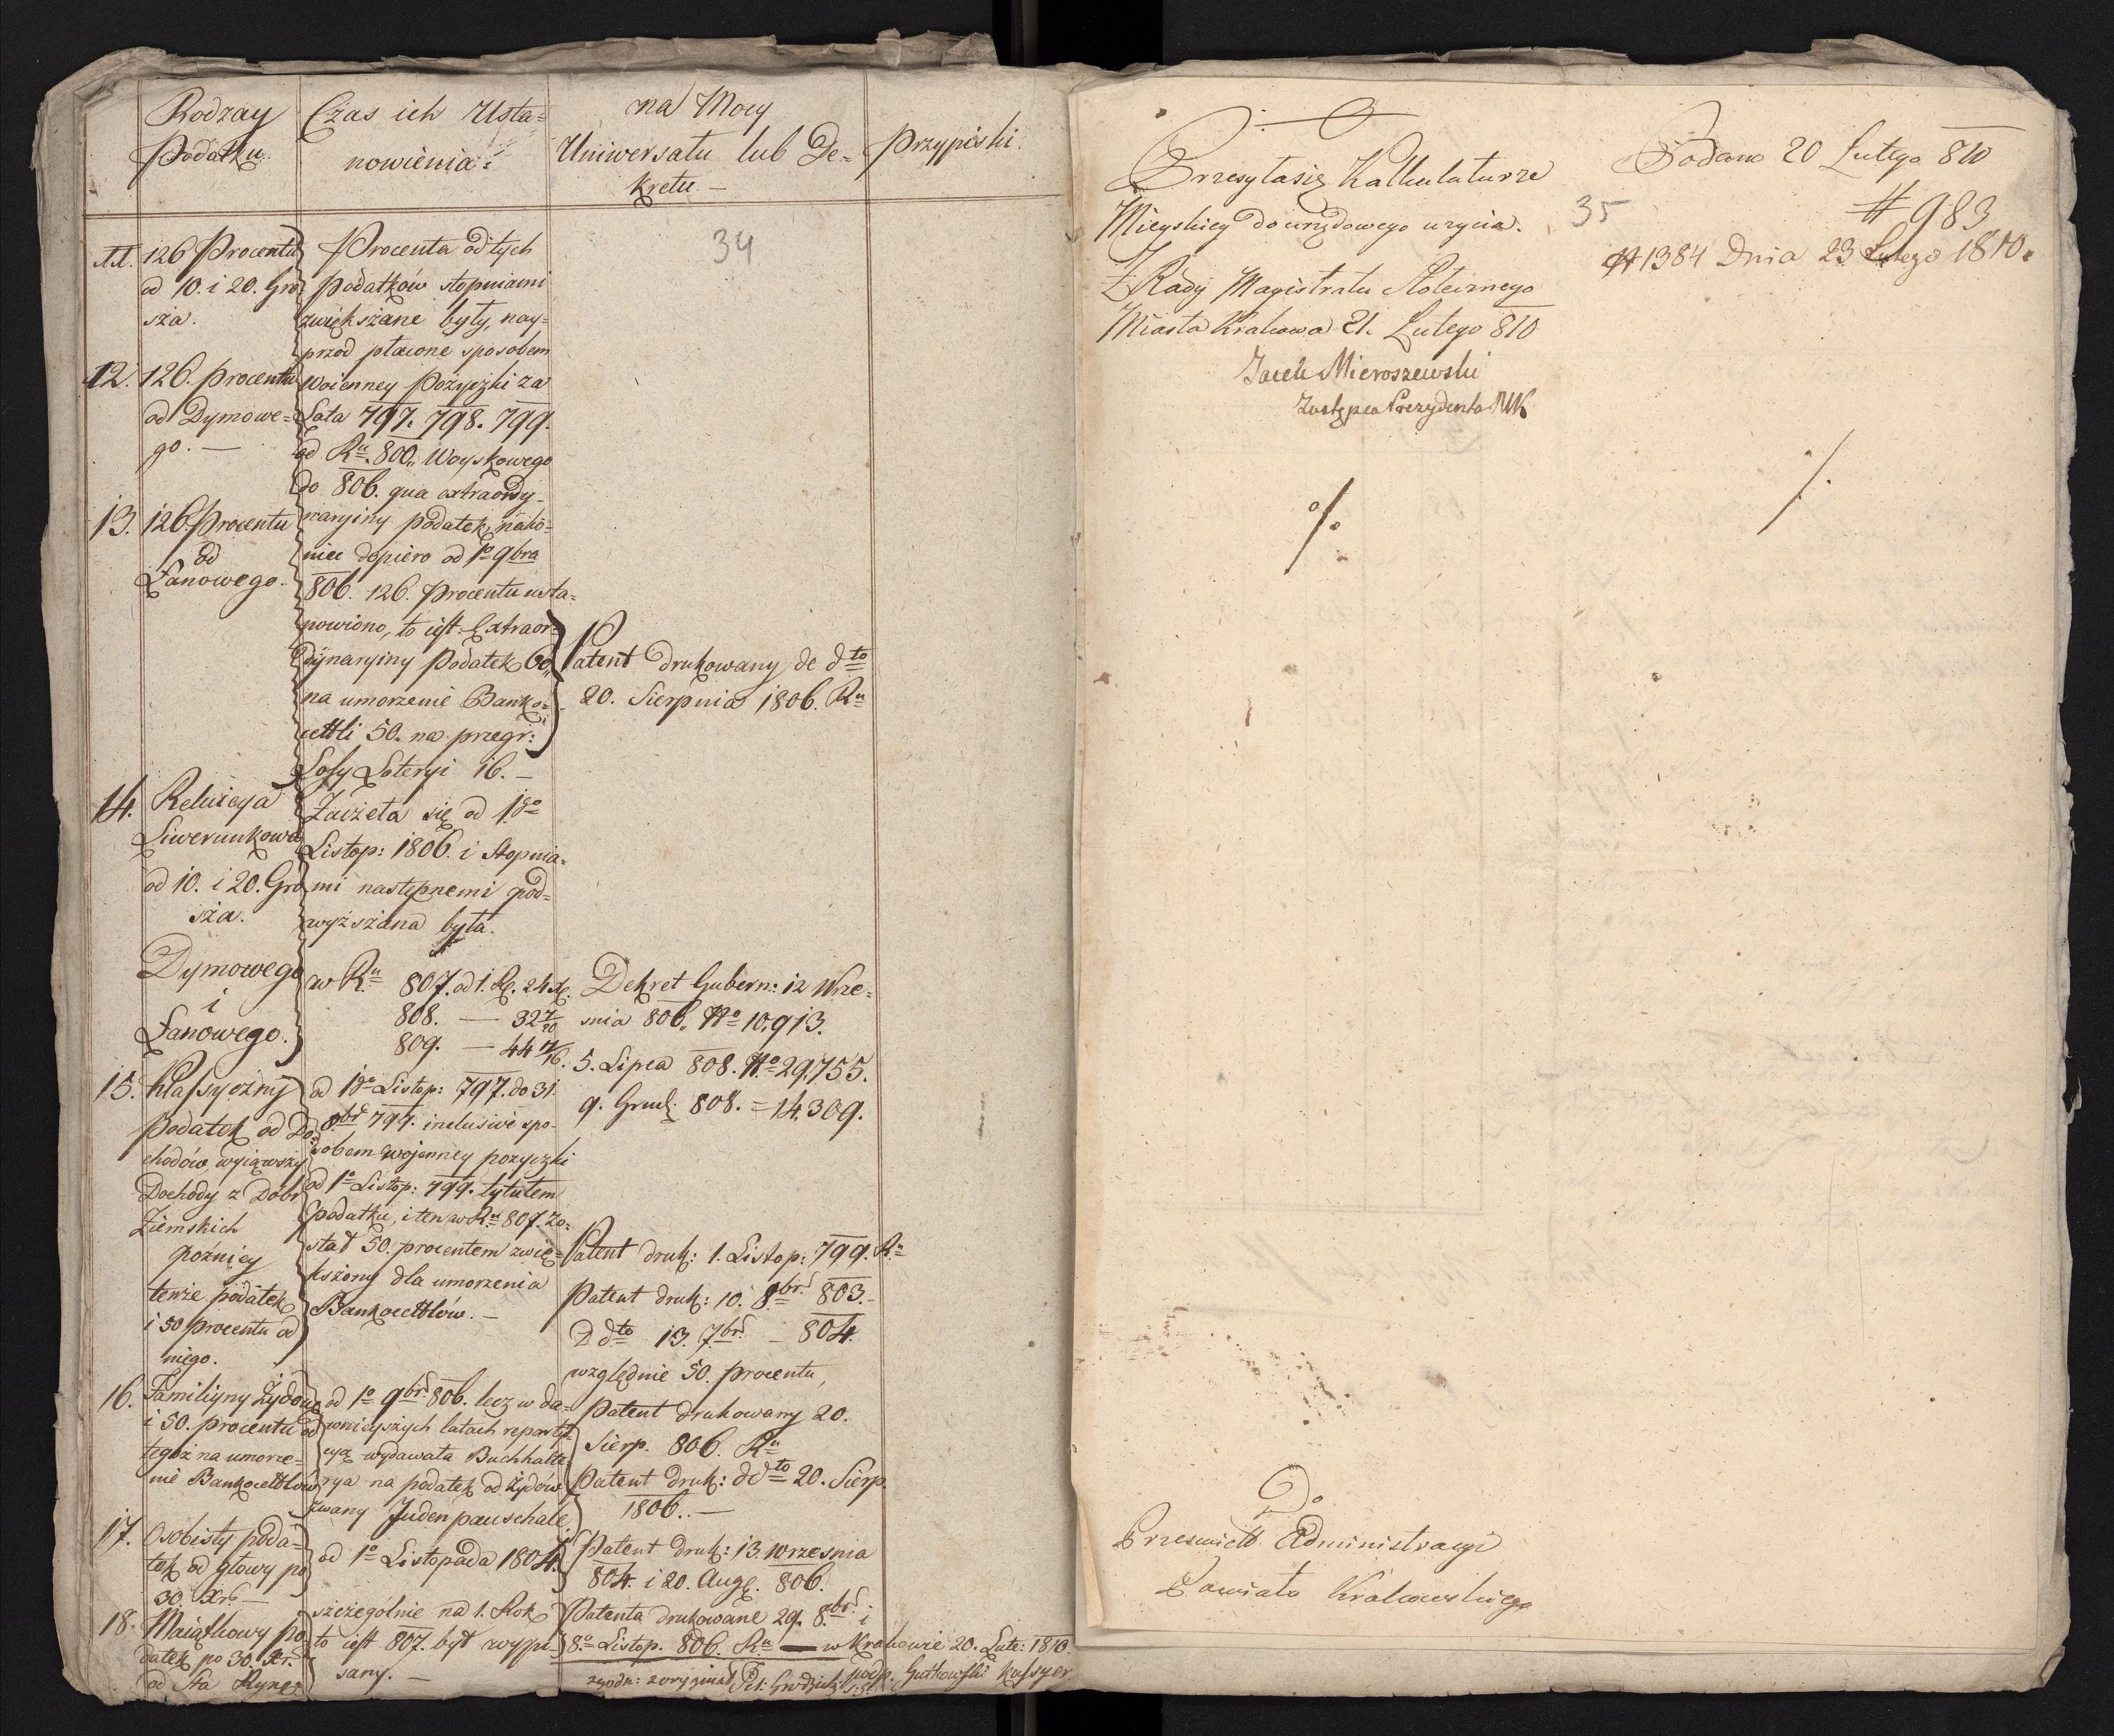 Rodzay
Podatku.
Czas ich Usta=
nowienia:
na Mocy
Uniwersału lub De=
kretu. —
Przypiski.
34
11. 126 Procentu
od 10. i 20. Gro
sza.
12. 126. procentu
od Dymowe=
go. —
13. 126. Procentu
od
Łanowego.
Procenta od tych
podatków stopniami
zwiększane były, nay=
przód płacone sposobem
Woienney Pożyczki za
Lata 797. 798. 799.
od Ru 800. Woyskowego
do 806. qua extraordy=
naryiny podatek, nako=
niec dopiero od 1o 9bra
806. 126. Procentu usta=
nowiono, to iest: Extraor=
dynaryiny Podatek 60
na umorzenie Banko=
cettli 50. na przegr:
Losy Loteryi 16. —
Patent drukowany de dto
20. Sierpnia 1806. Ru
14. Reluicya
Liwerunkowa
od 10. i 20. Gro
sza.
Dymowego
i
Łanowego.
Zaczęta się od 1go
Listop: 1806. i Stopnia=
mi następnemi pod=
wyższana była.
w Ru 807. od 1. 24
808. — 32
809. — 44
Dekret Gubern: 12 Wrze=
snia 806. No 10,913.
5. Lipca 808. No 29,755.
9. Grud: 808. = 14,309.
15. Klassyczny
Podatek od Do=
chodów, wyiąwszy
Dochody z Dóbr
Ziemskich
poźniey
tenże podatek
i 50 procentu od
niego.
od 1go Listop: 797. do 31.
8br 799. inclusive spo=
sobem wojenney pożyczki
od 1o Listop: 799. tytułem
podatku, i ten w Ru 807. zo=
stał 50. procentem zwię=
kszony dla umorzenia
Bankocettlów. —
Patent druk: 1. Listop: 799. Ru
Patent druk: 10. 8br 803. —
D dto 13. 7br — 804.
względnie 50. procentu,
16. Familiyny Żydow.
i 50. procentu od
tegoż na umorze=
nie Bankocettlów
od 1o 9br 806. lecz w da=
wnieyszych latach reparty=
cyą wydawała Buchhalte
rya na podatek od Żydów
zwany Juden pauschale
Patent drukowany 20.
Sierp. 806. Ru
Patent druk: de dto 20. Sierp.
1806. —
17. Osobisty poda=
tek od głowy po
30. Xr. —
od 1o Listopada 1804.
Patent druk: 13. Wrzesnia
804. i 20. Aug. 806.
18. Maiątkowy po
datek po 30. Xr.
od Sta Ryne
szczególnie na 1. Rok
to iest 807. był wypi=
sany. —
Patenta drukowane 29. 8br i
8o Listop. 806. Ru — w Krakowie 20. Lute: 1810.
podp. Gutkowski Kassyer
35
Przesyła się Kalkulaturze
Mieyskiey do urzędowego użycia.
Z Rady Magistratu Stołecznego
Miasta Krakowa 21. Lutego 810
Jacek Mieroszewski
Zastępca Prezydenta MK
Podano 20 Lutego 810
# 983
# 1384 Dnia 23 Lutego 1810.
Do
Przeświett Administracyi
Powiatu Krakowskiego